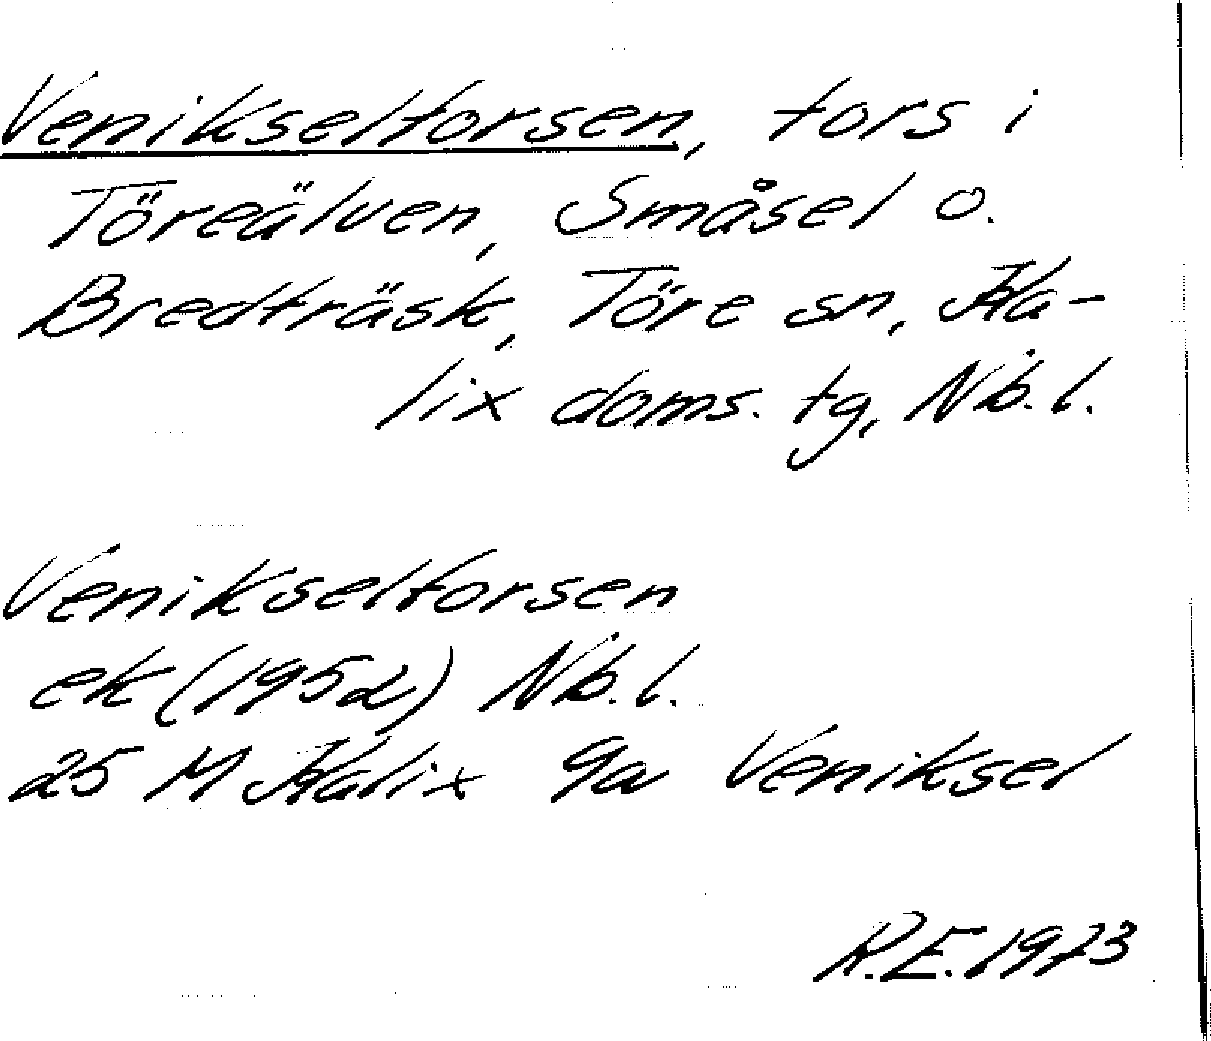 Venikselforsen, fors i
Töreälven, Småsel o.
Bredträsk, Töre sn, Ka-
lix doms. tg, Nb.l.
Venikselforsen
ek (1952) Nb.l.
25 M Kalix 9a Veniksel
R.E. 1973